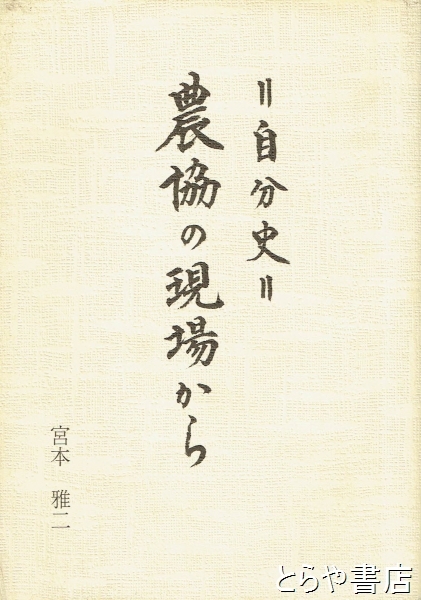 =自分史=
農協の現場から
宮本 雅二
とらや書店